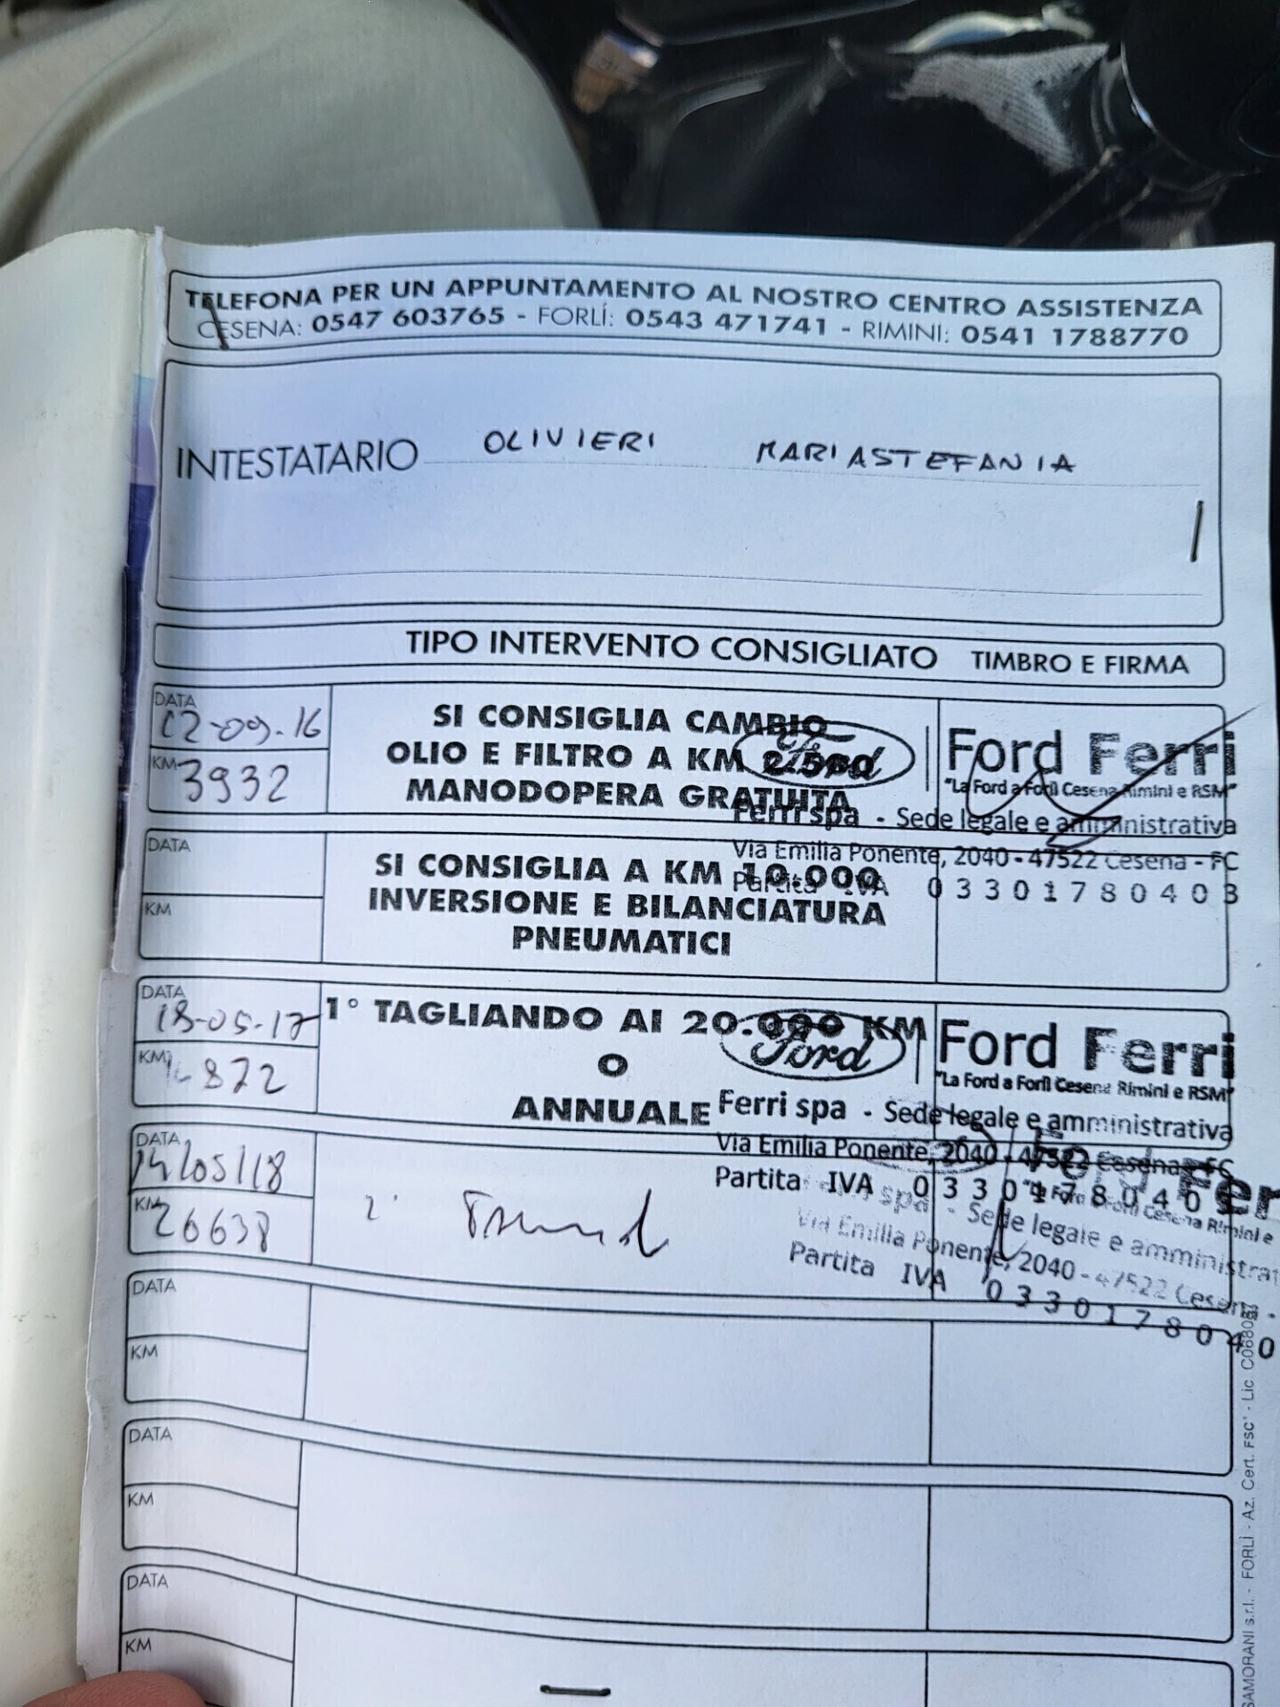 TELEFONA PER UN APPUNTAMENTO AL NOSTRO CENTRO ASSISTENZA
CESENA: 0547 603765 - FORLÌ: 0543 471741 - RIMINI: 0541 1788770
INTESTATARIO OLIVIERI MARIASTEFANIA
TIPO INTERVENTO CONSIGLIATO TIMBRO E FIRMA
DATA
12-09-16
KM 3932
SI CONSIGLIA CAMBIO
OLIO E FILTRO A KM 2.500
MANODOPERA GRATUITA
Ford
Ford Ferri
"La Ford a Forlì Cesena Rimini e RSM"
Ferri spa - Sede legale e amministrativa
Via Emilia Ponente, 2040 - 47522 Cesena - FC
Partita IVA 03301780403
DATA
KM
SI CONSIGLIA A KM 10.000
INVERSIONE E BILANCIATURA
PNEUMATICI
DATA
18-05-17
KM 14872
1° TAGLIANDO AI 20.000 KM
O
ANNUALE
Ford
Ford Ferri
"La Ford a Forlì Cesena Rimini e RSM"
Ferri spa - Sede legale e amministrativa
Via Emilia Ponente, 2040 - 47522 Cesena - FC
Partita IVA 03301780403
DATA
14/05/18
KM 26638
2°
Ford Fer
"La Ford a Forlì Cesena Rimini e
spa - Sede legale e amministrat
Via Emilia Ponente, 2040 - 47522 Cesena -
Partita IVA 0330178040
DATA
KM
DATA
KM
DATA
KM
SAMORANI s.r.l. - FORLÌ - Az. Cert. FSC® - Lic. C0680